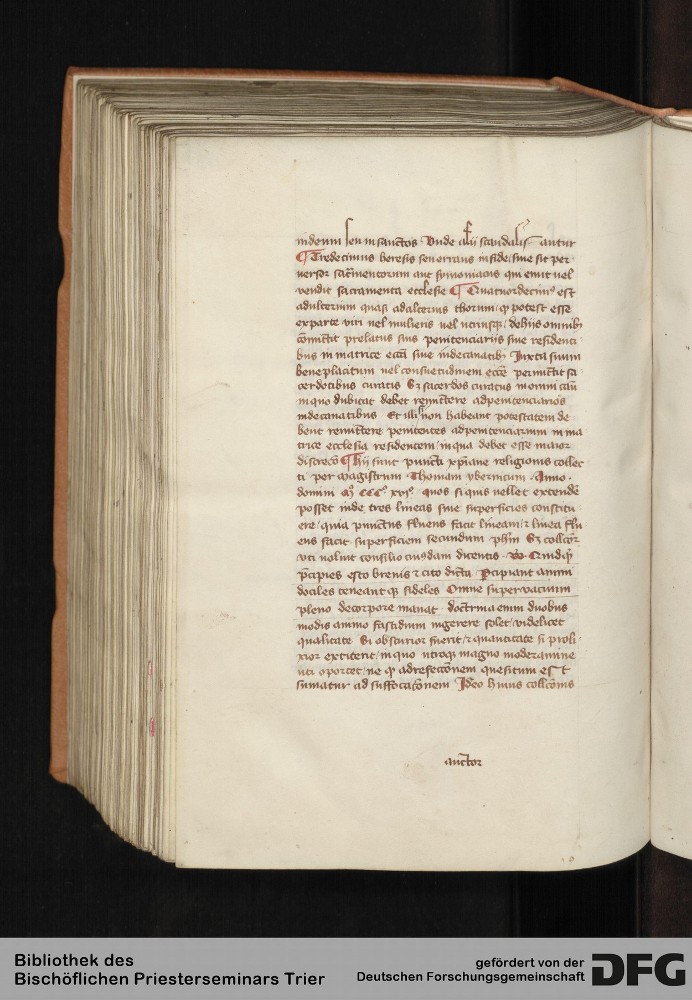 in deum seu in sanctos Unde alii scandalisantur
¶ Tredecimus heresis seu errans in fide / siue sit per
versor sacramentorum aut symoniacus qui emit uel
vendit sacramenta ecclesie ¶ Quatuordecimus est
adulterium quasi ad alterius thorum / qd potest esse
ex parte viri uel mulieris uel utriusque / de hiis omnibus
committit prelatus suis penitenciariis siue residenti
bus in matrice ecca siue in decanatibus Iuxta suum
beneplacitum uel consuetudinem ecce permittit sa
cerdotibus curatis Sed sacerdos curatus in omni casu
in quo dubitat debet remittere ad penitenciarios
in decanatibus Et illi si non habeant potestatem de
bent remittere penitentes ad penitenciarium in ma
trice ecclesia residentem / in qua debet esse maior
discrecio ¶ Hii sunt puncti xpiane religionis collec
ti per magistrum Thomam ybernicum Anno
domini Mo CCCo xvio quos si quis uellet extendere
posset inde tres lineas siue superficies constitu
ere / quia punctus fluens facit lineam / et linea flu
ens facit superficiem secundum phm Sed collector
uti uoluit consilio cuiusdam dicentis Quidquid
precipies esto breuis et cito dicta Percipiant animi
dociles teneantque fideles Omne supervacuum
pleno de corpore manat doctrina enim duobus
modis animo fastidium ingerere solet / videlicet
qualitate Si obscurior fuerit / et quantitate si proli
xior extiterit / in quo utroque magno moderamine
uti oportet / ne quod ad refectionem quesitum est
sumatur ad suffocationem Ideo huius collectionis
auctor
Bibliothek des
Bischöflichen Priesterseminars Trier
gefördert von der
Deutschen Forschungsgemeinschaft
DFG